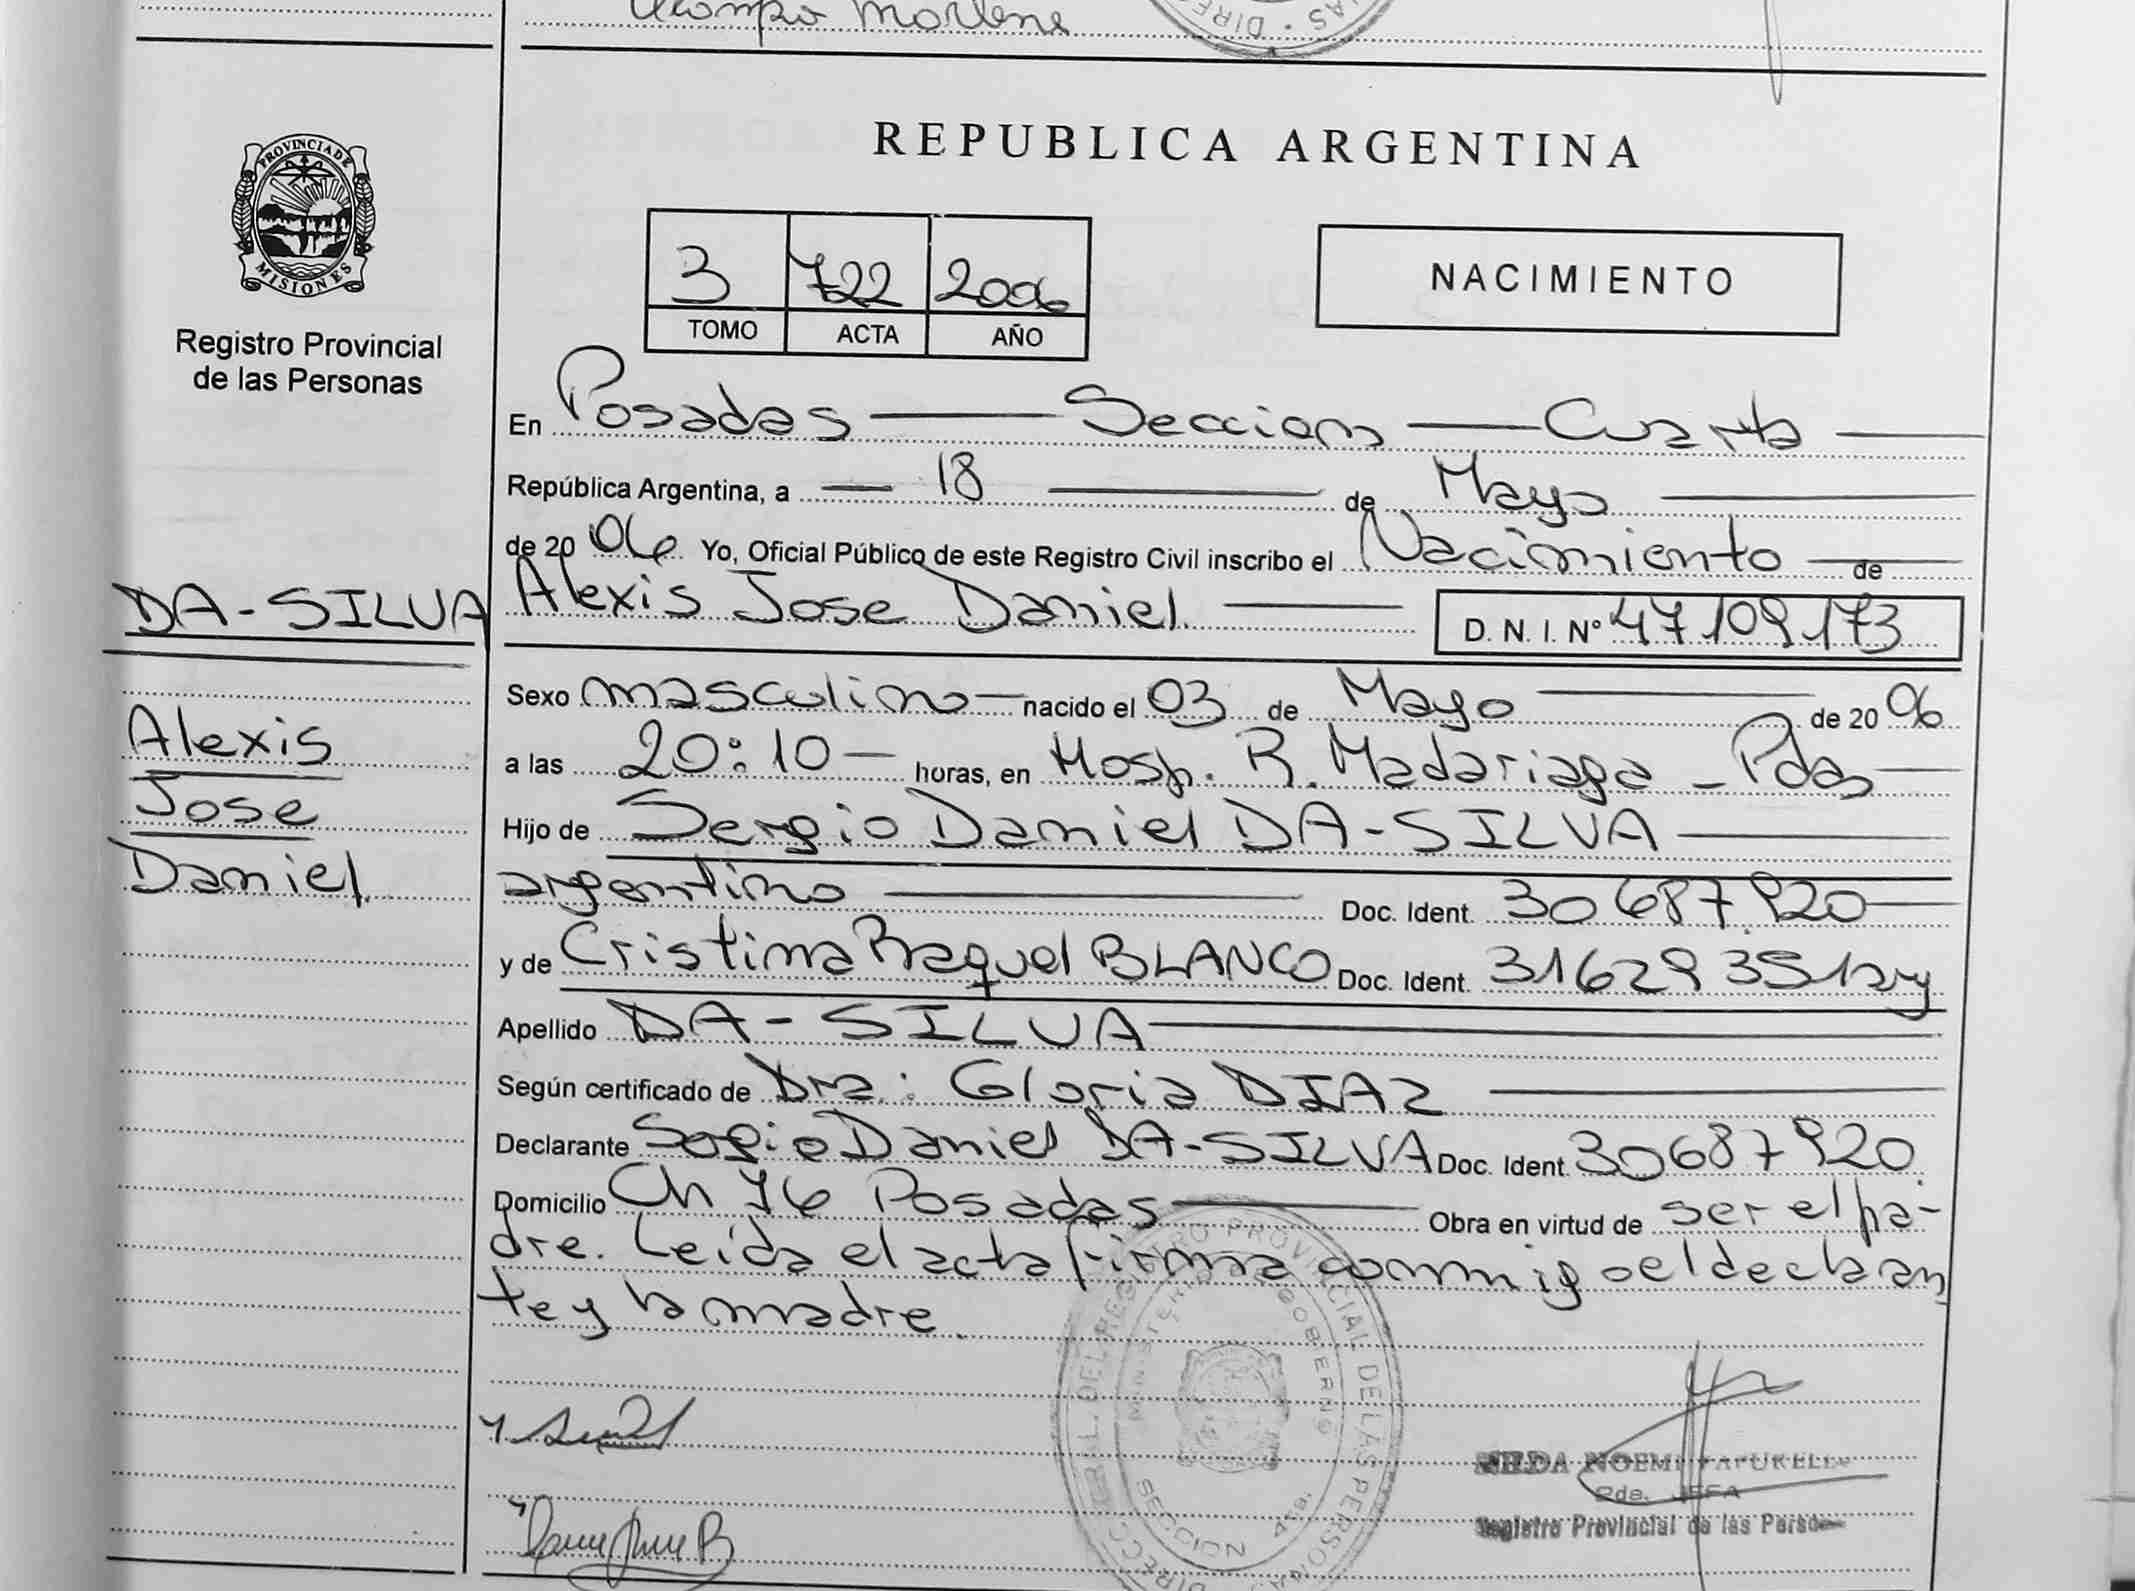 Ocampo Marlene
PROVINCIA DE
MISIONES
Registro Provincial
de las Personas
REPUBLICA ARGENTINA
3 722 2006
TOMO ACTA AÑO
NACIMIENTO
En Posadas Seccion Cuarta
República Argentina, a 18 de Mayo
de 2006 Yo, Oficial Público de este Registro Civil inscribo el Nacimiento de
DA-SILVA Alexis Jose Daniel D. N. I. Nº 47109173
Sexo masculino nacido el 03 de Mayo de 2006
Alexis
a las 20:10 horas, en Hosp. R. Madariaga - Pdas
Jose
Hijo de Sergio Daniel DA-SILVA
Daniel
argentino Doc. Ident. 30687.920
y de Cristina Raquel BLANCO Doc. Ident. 31629351 arg
Apellido DA-SILVA
Según certificado de Dra.: Gloria DIAZ
Declarante Sergio Daniel DA-SILVA Doc. Ident. 30687920
Domicilio Ch 76 Posadas Obra en virtud de ser el pa-
dre. Leida el acta firma conmigo el declaran
te y la madre.
REGISTRO PROVINCIAL DE LAS PERSONAS
MINISTERIO GOBIERNO
SECCION 4ta.
NOEMI
Pda. JEFA
Registro Provincial de las Person